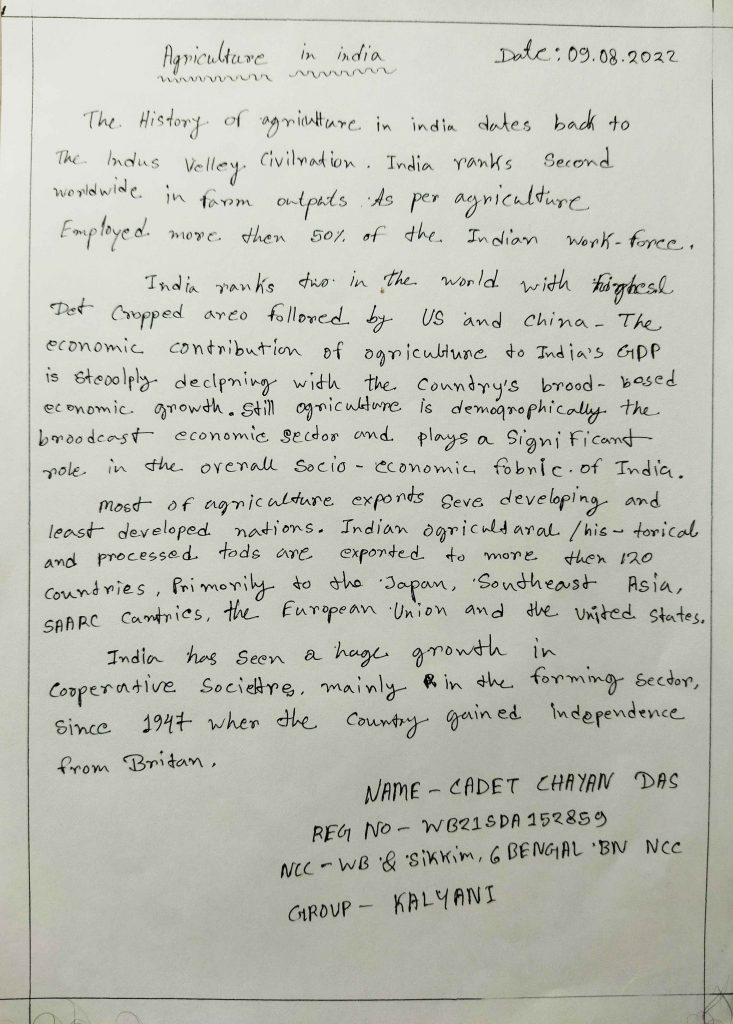 Agriculture in india Date: 09.08.2022
The History of agriculture in india dates back to
The Indus Velley Civilnation. India ranks Second
worldwide in farm outputs. As per agriculture
Employed more then 50% of the Indian work-force.
India ranks two in the world with highest
Det Cropped areo followed by US and China - The
economic contribution of ogriculture to India's GDP
is steoolply declpning with the Country's brood-based
economic growth. Still ogriculture is demogrophically the
broodcast economic sector and plays a Significant
role in the overall Socio - economic fobric of India.
Most of agriculture exports Seve developing and
least developed nations. Indian ogricultaral /his-torical
and processed tods are exported to more then 120
Countries, Primorily to the Japan, Southeast Asia,
SAARC Cantries, the European Union and the United States.
India has Seen a hage growth in
Cooperative Societres, mainly in the forming Sector,
Since 1947 when the Country gained independence
from Britan.
NAME - CADET CHAYAN DAS
REG NO - WB21SDA152859
NCC - WB & Sikkim, 6 BENGAL BN NCC
GROUP - KALYANI